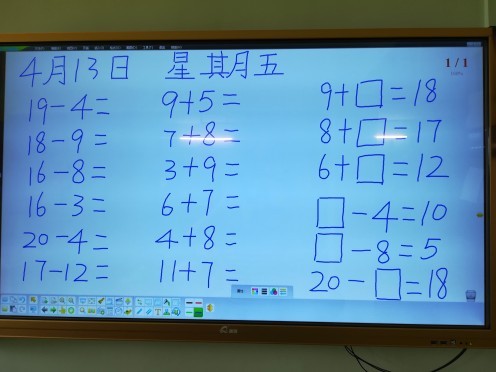 4月13日 星其月五
1/1
19-4= 9+5= 9+□=18
18-9= 7+8= 8+□=17
16-8= 3+9= 6+□=12
16-3= 6+7= □-4=10
20-4= 4+8= □-8=5
17-12= 11+7= 20-□=18